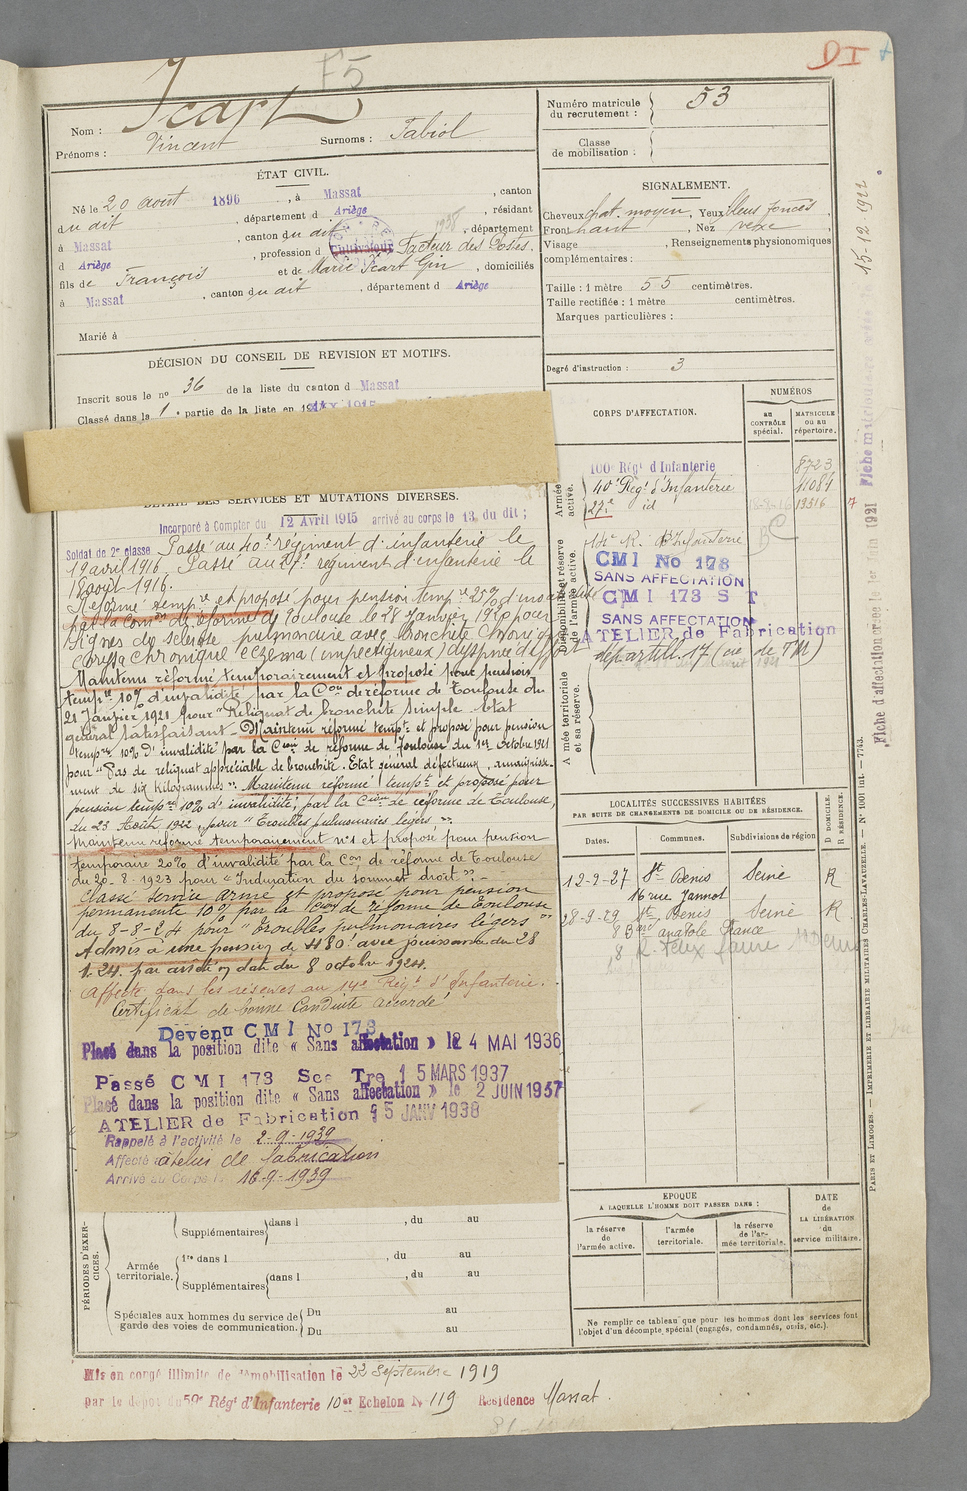 F5
DI
Nom : Icart
Prénoms : Vincent Surnoms : Tabiol
Numéro matricule du recrutement : 53
Classe de mobilisation :
ÉTAT CIVIL.
Né le 20 août 1896, à Massat, canton
du dit, département d Ariège, résidant
à Massat, canton du dit, 1938, département
d Ariège, profession d Cultivateur Facteur des Postes.
fils de François et de Marie Icart Gin, domiciliés
à Massat, canton du dit, département d Ariège
Marié à
SIGNALEMENT.
Cheveux chat. moyen, Yeux bleus foncés,
Front haut, Nez vexe,
Visage , Renseignements physionomiques
complémentaires :
Taille : 1 mètre 55 centimètres.
Taille rectifiée : 1 mètre centimètres.
Marques particulières :
Degré d'instruction : 3
DÉCISION DU CONSEIL DE REVISION ET MOTIFS.
Inscrit sous le n° 36 de la liste du canton d Massat
Classé dans la 1 e partie de la liste en 1915
DÉTAIL DES SERVICES ET MUTATIONS DIVERSES.
Incorporé à Compter du 12 Avril 1915 arrivé au corps le 13, du dit ;
Soldat de 2e classe Passé au 40e régiment d'infanterie le
19 avril 1916. Passé au 27e régiment d'infanterie le
18 août 1916.
Réformé temp.re et proposé pour pension temp.re 25% d'invalidité
par la Com.on de réforme de Toulouse le 28 Janvier 1920 pour
signes de sclérose pulmonaire avec bronchite chronique
coryza chronique eczéma (impétigineux) dyspnée d'effort
Maintenu réformé temporairement et proposé pour pension
temp.re 10% d'invalidité par la C.on de réforme de Toulouse du
21 Janvier 1921 pour "Reliquat de bronchite simple état
général satisfaisant - Maintenu réformé temp.t et proposé pour pension
temp.re 10% d'invalidité par la C.on de réforme de Toulouse du 1er octobre 1921
pour "Pas de reliquat appréciable de bronchite. Etat général défectueux, amaigrisse-
ment de six kilogrammes". Maintenu réformé temp.t et proposé pour
pension temp.re 10% d'invalidité, par la C.on de réforme de Toulouse,
du 23 Août 1922, pour "Troubles pulmonaires légers".
Maintenu réformé temporairement n° 1 et proposé pour pension
temporaire 20% d'invalidité par la C.on de réforme de Toulouse
du 20-8-1923 pour "Induration du sommet droit". -
Classé service armé et proposé pour pension
permanente 10% par la C.on de réforme de Toulouse
du 8-8-24 pour "troubles pulmonaires légers"
Admis à une pension de 480 f avec jouissance du 28
1.24. par arrêté en date du 8 octobre 1924.
Affecté dans les réserves au 14e Rég.t d'Infanterie.
Certificat de bonne Conduite accordé
Devenu CMI No 178
Placé dans la position dite « Sans affectation » le 24 MAI 1936
Passé CMI 173 Sec Tre 15 MARS 1937
Placé dans la position dite « Sans affectation » le 2 JUIN 1937
ATELIER de Fabrication 15 JANV 1938
Rappelé à l'activité le 2-9-1939
Affecté atelier de fabrication
Arrivé au Corps le 16-9-1939
CORPS D'AFFECTATION.
NUMÉROS
au CONTRÔLE spécial.
MATRICULE ou au répertoire.
Armée active.
100e Régt d'Infanterie 8723
40e Rég.t d'Infanterie 11084
27e id 13316
Disponibilité et réserve de l'armée active.
14e R. d'Infanterie
CMI No 178
SANS AFFECTATION
CMI 173 S T
SANS AFFECTATION
ATELIER de Fabrication
Armée territoriale et sa réserve.
LOCALITÉS SUCCESSIVES HABITÉES
PAR SUITE DE CHANGEMENTS DE DOMICILE OU DE RÉSIDENCE.
Dates.
Communes.
Subdivisions de région
D DOMICILE.
R RÉSIDENCE.
12-2-27 St Denis Seine R
16 rue Jannot
28-9-29 St Denis Seine R
8 Bard anatole France
8 R. Felix faure St Denis
EPOQUE
A LAQUELLE L'HOMME DOIT PASSER DANS :
la réserve de l'armée active.
l'armée territoriale.
la réserve de l'armée territoriale.
DATE de LA LIBÉRATION du service militaire.
Ne remplir ce tableau que pour les hommes dont les services font
l'objet d'un décompte spécial (engagés, condamnés, omis, etc.).
PÉRIODES D'EXERCICES.
Supplémentaires dans l , du au
Armée territoriale.
1re dans l , du au
Supplémentaires dans l , du au
Spéciales aux hommes du service de garde des voies de communication.
Du au
Du au
Mis en congé illimité de démobilisation le 22 Septembre 1919
par le dépôt du 59e Régt d'Infanterie 10er Echelon N° 119 Résidence Massat.
15-12-1922
Fiche d'affectation créée le 1er Juin 1921
PARIS ET LIMOGES. — IMPRIMERIE ET LIBRAIRIE MILITAIRES CHARLES-LAVAUZELLE. — N° 1001 int. — 7743.